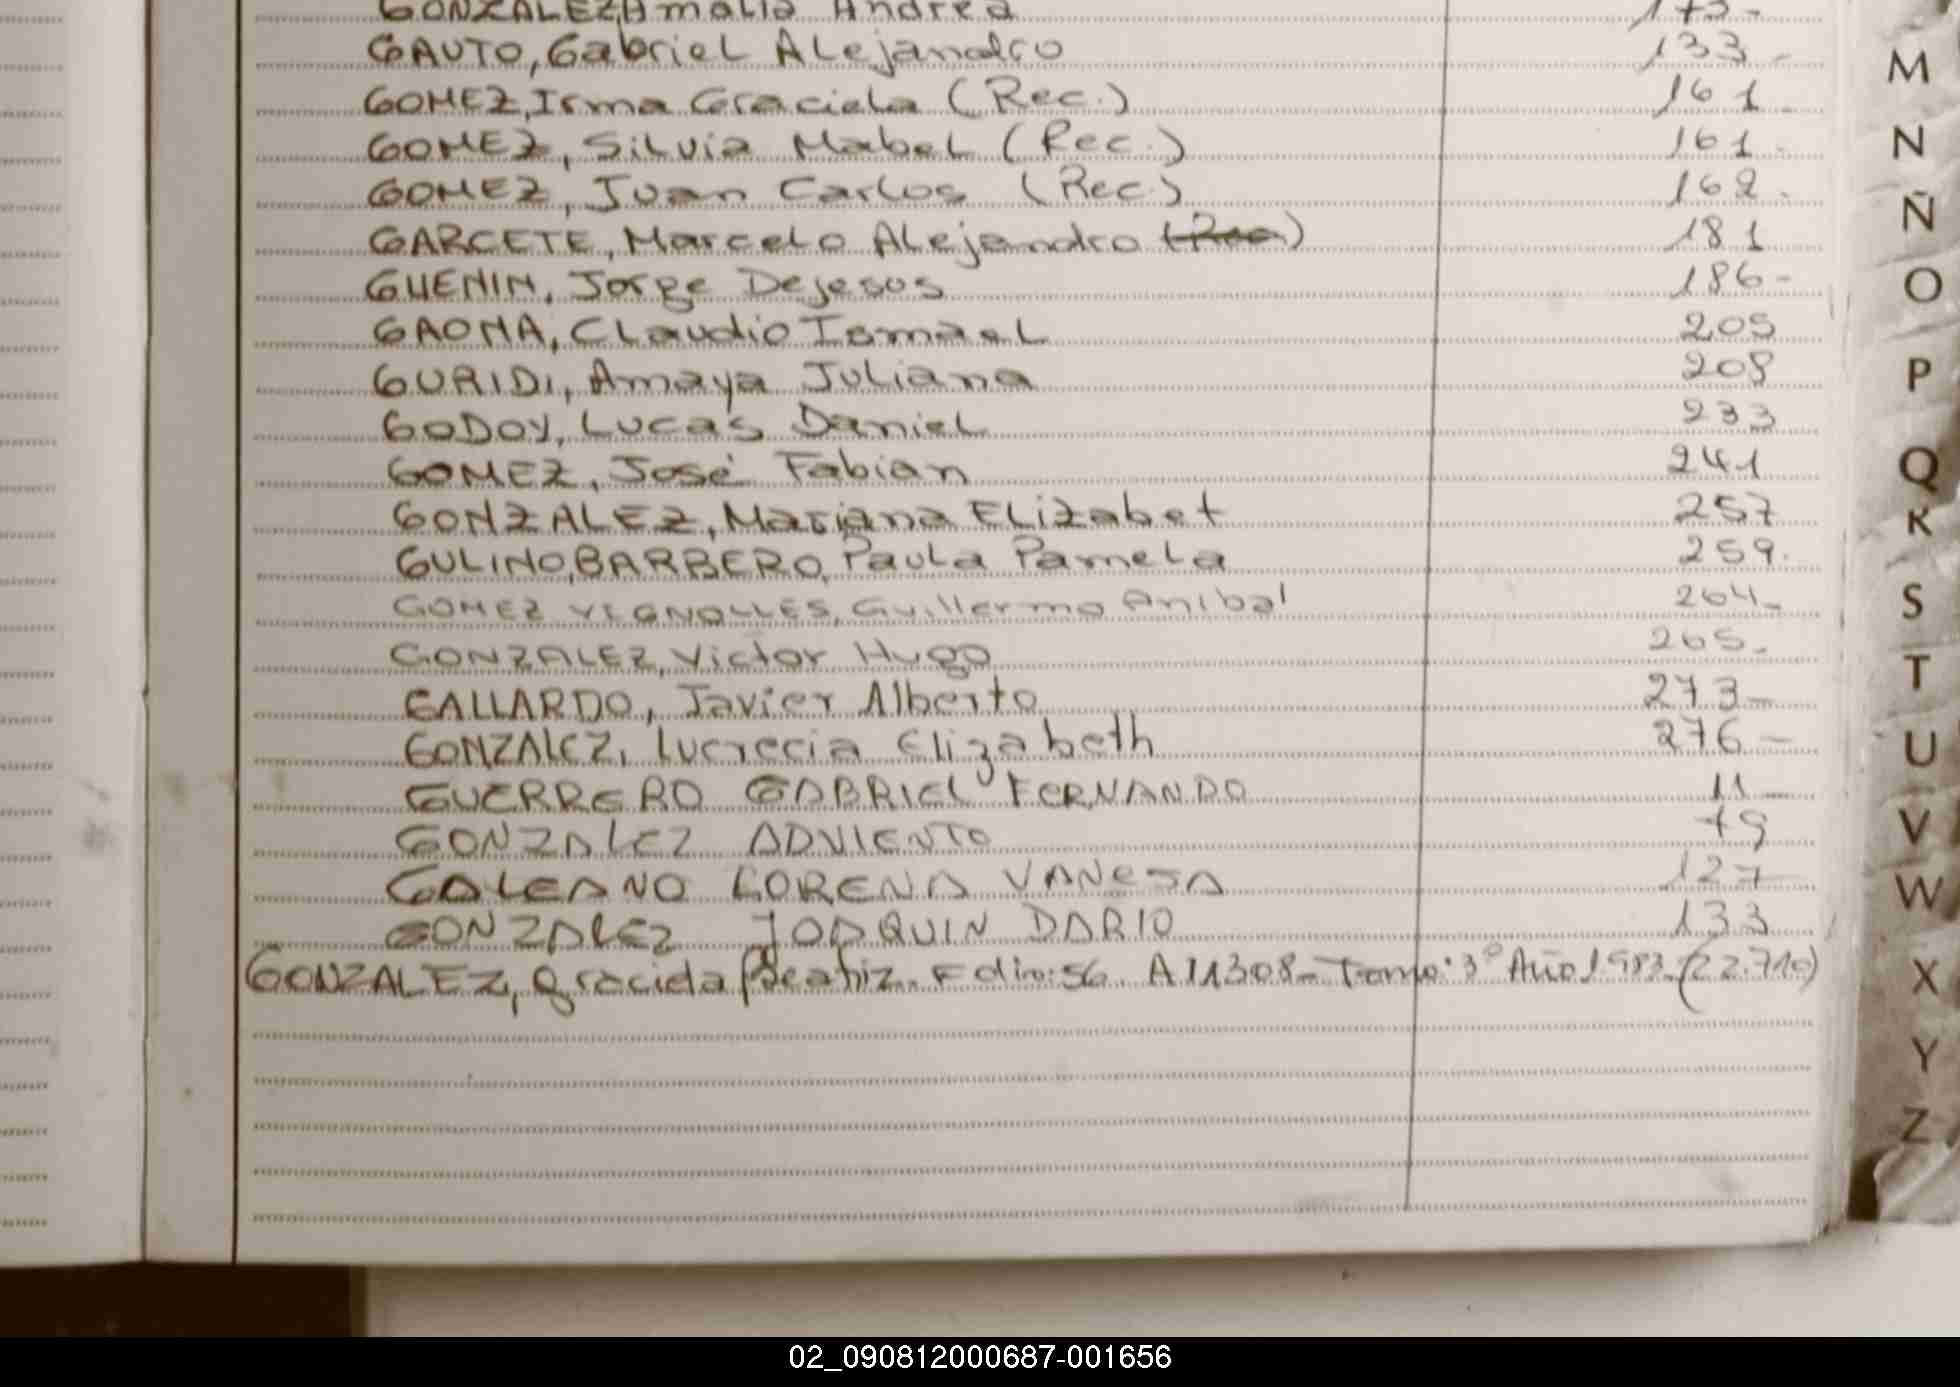 GONZALEZ, Amalia Andrea 173-
GAUTO, Gabriel Alejandro 133-
GOMEZ, Irma Graciela (Rec.) 161
GOMEZ, Silvia Mabel (Rec.) 161
GOMEZ, Juan Carlos (Rec.) 162
GARCETE, Marcelo Alejandro (Rec) 181
GUENIN, Jorge Dejesus 186-
GAONA, Claudio Ismael 205
GURIDI, Amaya Juliana 208
GODOY, Lucas Daniel 233
GOMEZ, José Fabian 241
GONZALEZ, Mariana Elizabet 257
GULINO, BARBERO, Paula Pamela 259.
GOMEZ VIGNOLLES, Guillermo Anibal 264-
GONZALEZ, Victor Hugo 265-
GALLARDO, Javier Alberto 273-
GONZALEZ, Lucrecia Elizabeth 276-
GUERRERO GABRIEL FERNANDO 11-
GONZALEZ ADVIENTO 79
GALEANO LORENA VANESA 127
GONZALEZ JOAQUIN DARIO 133
GONZALEZ, Graciela Beatriz. Folio: 56 A 11308- Tomo: 3° Año 1983. (22.710)
M
N
Ñ
O
P
Q
R
S
T
U
V
W
X
Y
Z
02_090812000687-001656